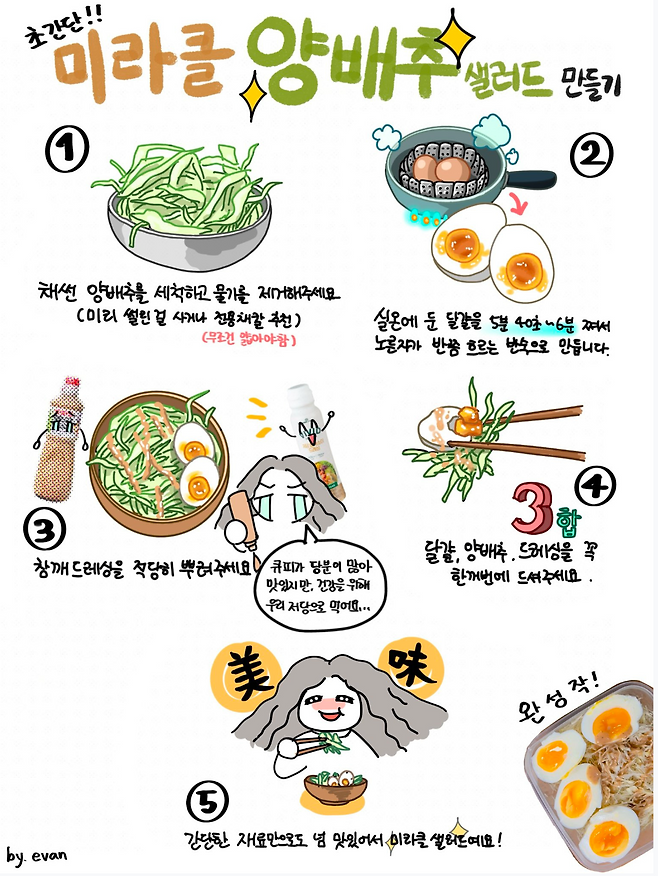 초간단!!
미라클 양배추 샐러드 만들기
①
채썬 양배추를 세척하고 물기를 제거해주세요
(미리 썰린 걸 사거나 전용채칼 추천)
(무조건 얇아야함)
②
실온에 둔 달걀을 5분 40초~6분 쪄서
노른자가 반쯤 흐르는 반숙으로 만듭니다.
③
참깨 드레싱을 적당히 뿌려주세요
큐피가 당분이 많아
맛있지만, 건강을 위해
우리 저당으로 먹어요...
④
3합
달걀, 양배추, 드레싱을 꼭
한꺼번에 드셔주세요.
美味
⑤
간단한 재료만으로도 넘 맛있어서 미라클 샐러드예요!
완성작!
by. evan